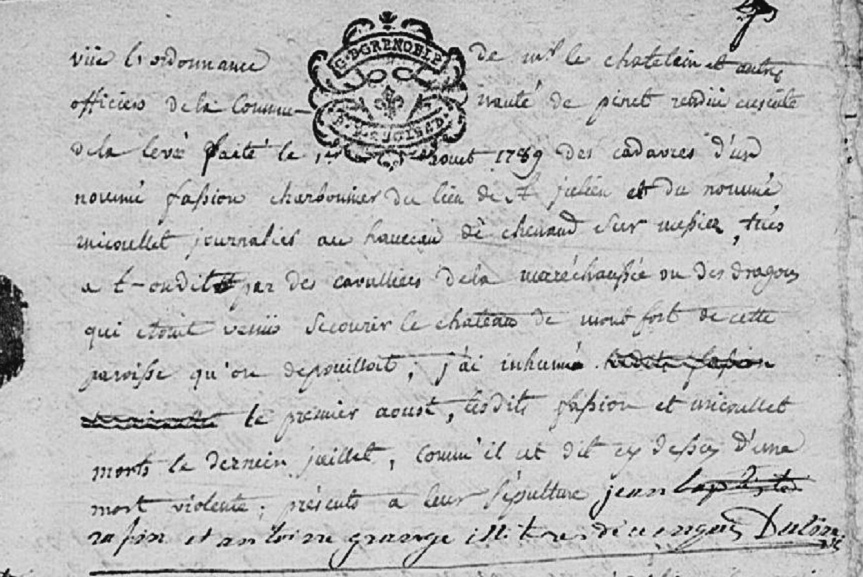 vüe l'ordonnance de mr le chatelain et autres
officiers de la Commu- nauté de rendüe ensuite
de la levée faite le 1er aoust 1789 des cadavres d'un
nommé faßion charbonnier du lieu de St julien et du nommé
micoullet journalier au hameau de chenaud sur , tués
a t-on dit par des cavalliers de la maréchaussée ou des dragons
qui etoint venus secourir le chateau de montfort de cette
paroisse qu'on depouilloit, j'ai inhumé lesdits faßion
et micoullet le premier aoust, lesdits faßion et micoullet
morts le dernier juillet, comm'il est dit cy dessus d'une
mort violente; présents a leur sépulture jean baptiste
rafin et antoine grange illitres de ce enquis
G. D GRENOBLE